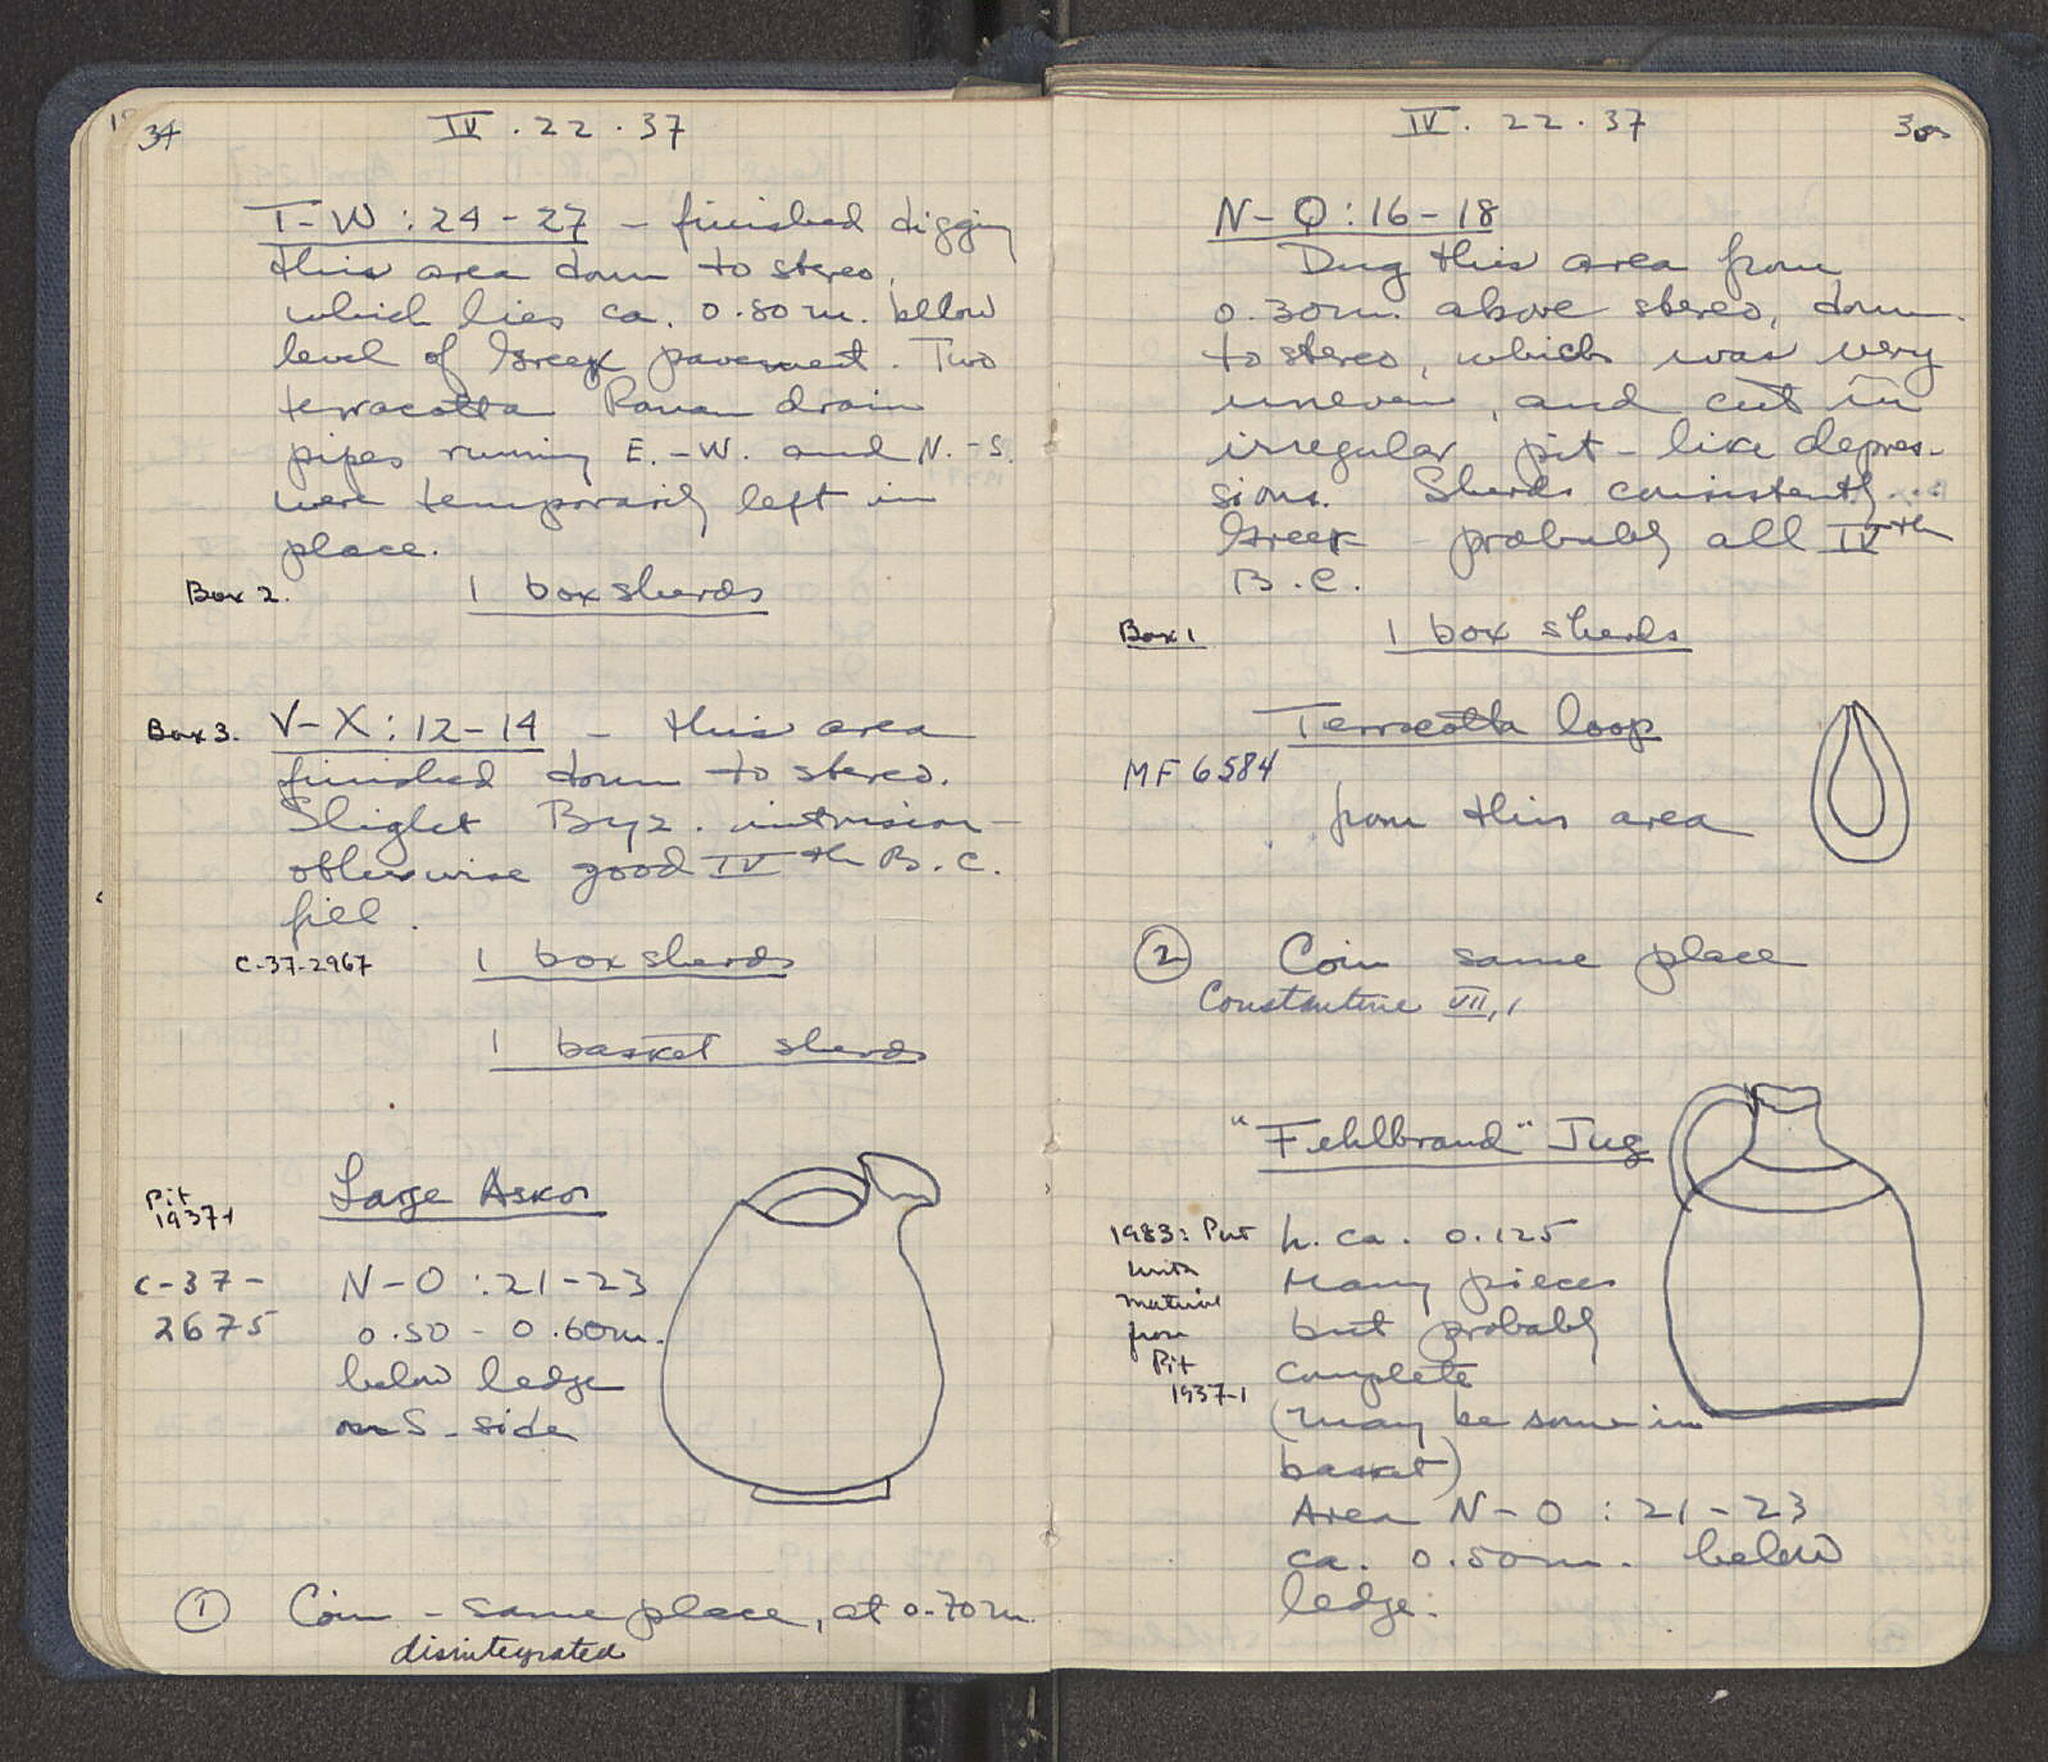 34
IV . 22 . 37
T-W : 24 - 27 - finished digging
this area down to stereo,
which lies ca. 0.80 m. below
level of Greek pavement. Two
terracotta Roman drain
pipes running E.-W. and N.-S.
were temporarily left in
place.
Box 2.
1 box sherds
Box 3.
V-X : 12-14 - this area
finished down to stereo.
Slight Byz. intrusion -
otherwise good IVth B.C.
fill.
C-37-2967
1 box sherds
1 basket sherds
Pit
1937-1
Large Askos
C-37-
2675
N-O : 21-23
0.50 - 0.60m.
below ledge
on S. side
① Coin - same place, at 0.70 m
disintegrated
IV. 22 . 37
N-O : 16-18
Dug this area from
0.30m. above stereo, down
to stereo, which was very
uneven, and cut in
irregular pit-like depres-
sions. Sherds consistently
Greek - probably all IVth
B.C.
Box 1
1 box sherds
Terracotta loop
MF 6584
from this area
② Coin same place
Constantine VII, 1
"Fehlbrand" Jug
1983: Put
with
material
from
Pit
1937-1
h. ca. 0.125
Many pieces
but probably
complete
(may be some in
basket)
Area N-O : 21-23
ca. 0.50m. below
ledge.